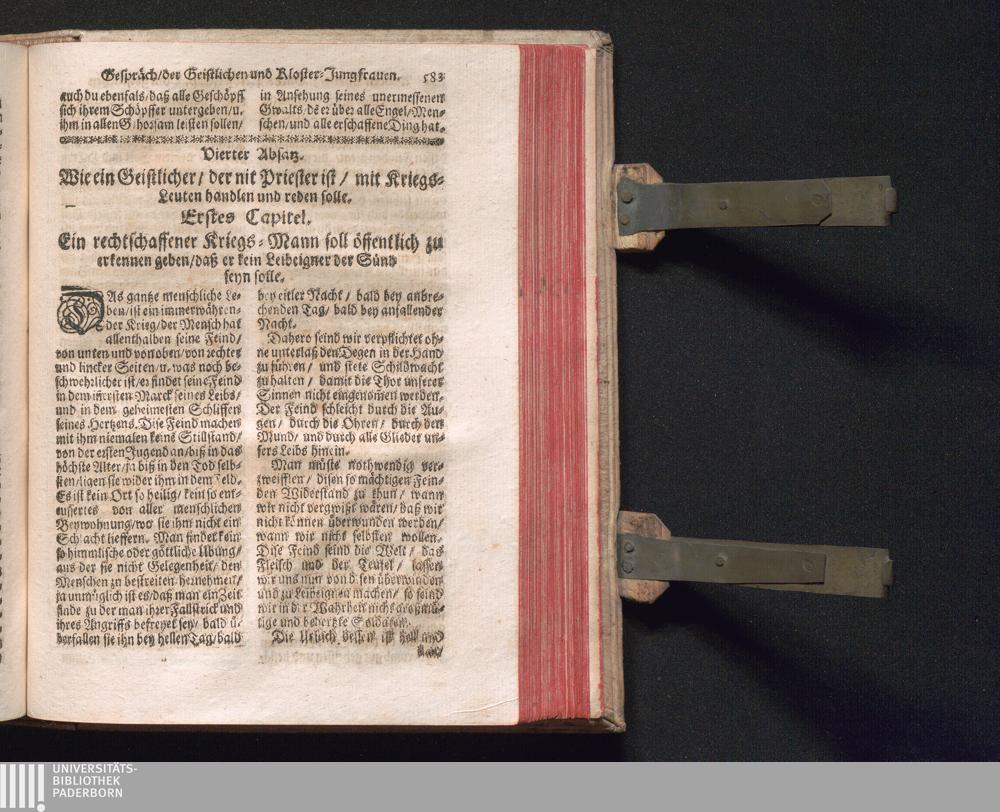 Gespräch/der Geistlichen und Kloster-Jungfrauen. 583
auch du ebenfals/daß alle Geschöpff
sich ihrem Schöpffer untergeben/u.
ihm in allen Ghorsam leisten sollen/
in Ansehung seines unermessenen
Gwalts/dē er über alle Engel/Men-
schen/und alle erschaffene Ding hat.
Vierter Absatz.
Wie ein Geistlicher/ der nit Priester ist/ mit Kriegs-
Leuten handlen und reden solle.
Erstes Capitel.
Ein rechtschaffener Kriegs-Mann soll öffentlich zu
erkennen geben/daß er kein Leibeigner der Sünd
seyn solle.
DAs gantze menschliche Le-
ben/ist ein immerwähren-
der Krieg/der Mensch hat
allenthalben seine Feind/
von unten und von oben/von rechter
und lincker Seiten/u. was noch be-
schwehrlicher ist/er findet seine Feind
in dem iñersten Marck seines Leibs/
und in dem geheimesten Schliffen
seines Hertzens. Dise Feind machen
mit ihm niemalen keins Stillstand/
von der ersten Jugend an/biß in das
höchste Alter/ja biß in den Tod selb-
sten/ligen sie wider ihm in dem Feld.
Es ist kein Ort so heilig/kein so ent-
eussertes von aller menschlichen
Beywohnung/wo sie ihm nicht ein
Schlacht lieffern. Man findet kein
so himmlische oder göttliche Ubung/
aus der sie nicht Gelegenheit/den
Menschen zu bestreiten hernehmen/
ja unmüglich ist es/daß man ein Zeit
finde zu der man ihrer Fallstrick und
ihres Angriffs befreyet sey/ bald ü-
berfallen sie ihn bey hellen Tag/bald
bey eitler Nacht/ bald bey anbre-
chenden Tag/ bald bey anfallender
Nacht.
Dahero seind wir verpflichtet oh-
ne unterlaß den Degen in der Hand
zu führen/ und stete Schildwacht
zu halten/ damit die Thor unserer
Sinnen nicht eingenom̃en werden.
Der Feind schleicht durch die Au-
gen/ durch die Ohren/ durch den
Mund/ und durch alle Glieder un-
sers Leibs hinein.
Man müste nothwendig ver-
zweifflen/ disen so mächtigen Fein-
den Widerstand zu thun/ wann
wir nicht vergwißt wären/daß wir
nicht können überwunden werden/
wann wir nicht selbsten wollen.
Dise Feind seind die Welt/ das
Fleisch und der Teufel/ lassen
wir uns nun von disen überwinden
und zu Leibeignen machen/ so seind
wir in der Wahrheit nichs großmü-
tige und behertzte Soldaten.
Die
UNIVERSITÄTS-
BIBLIOTHEK
PADERBORN